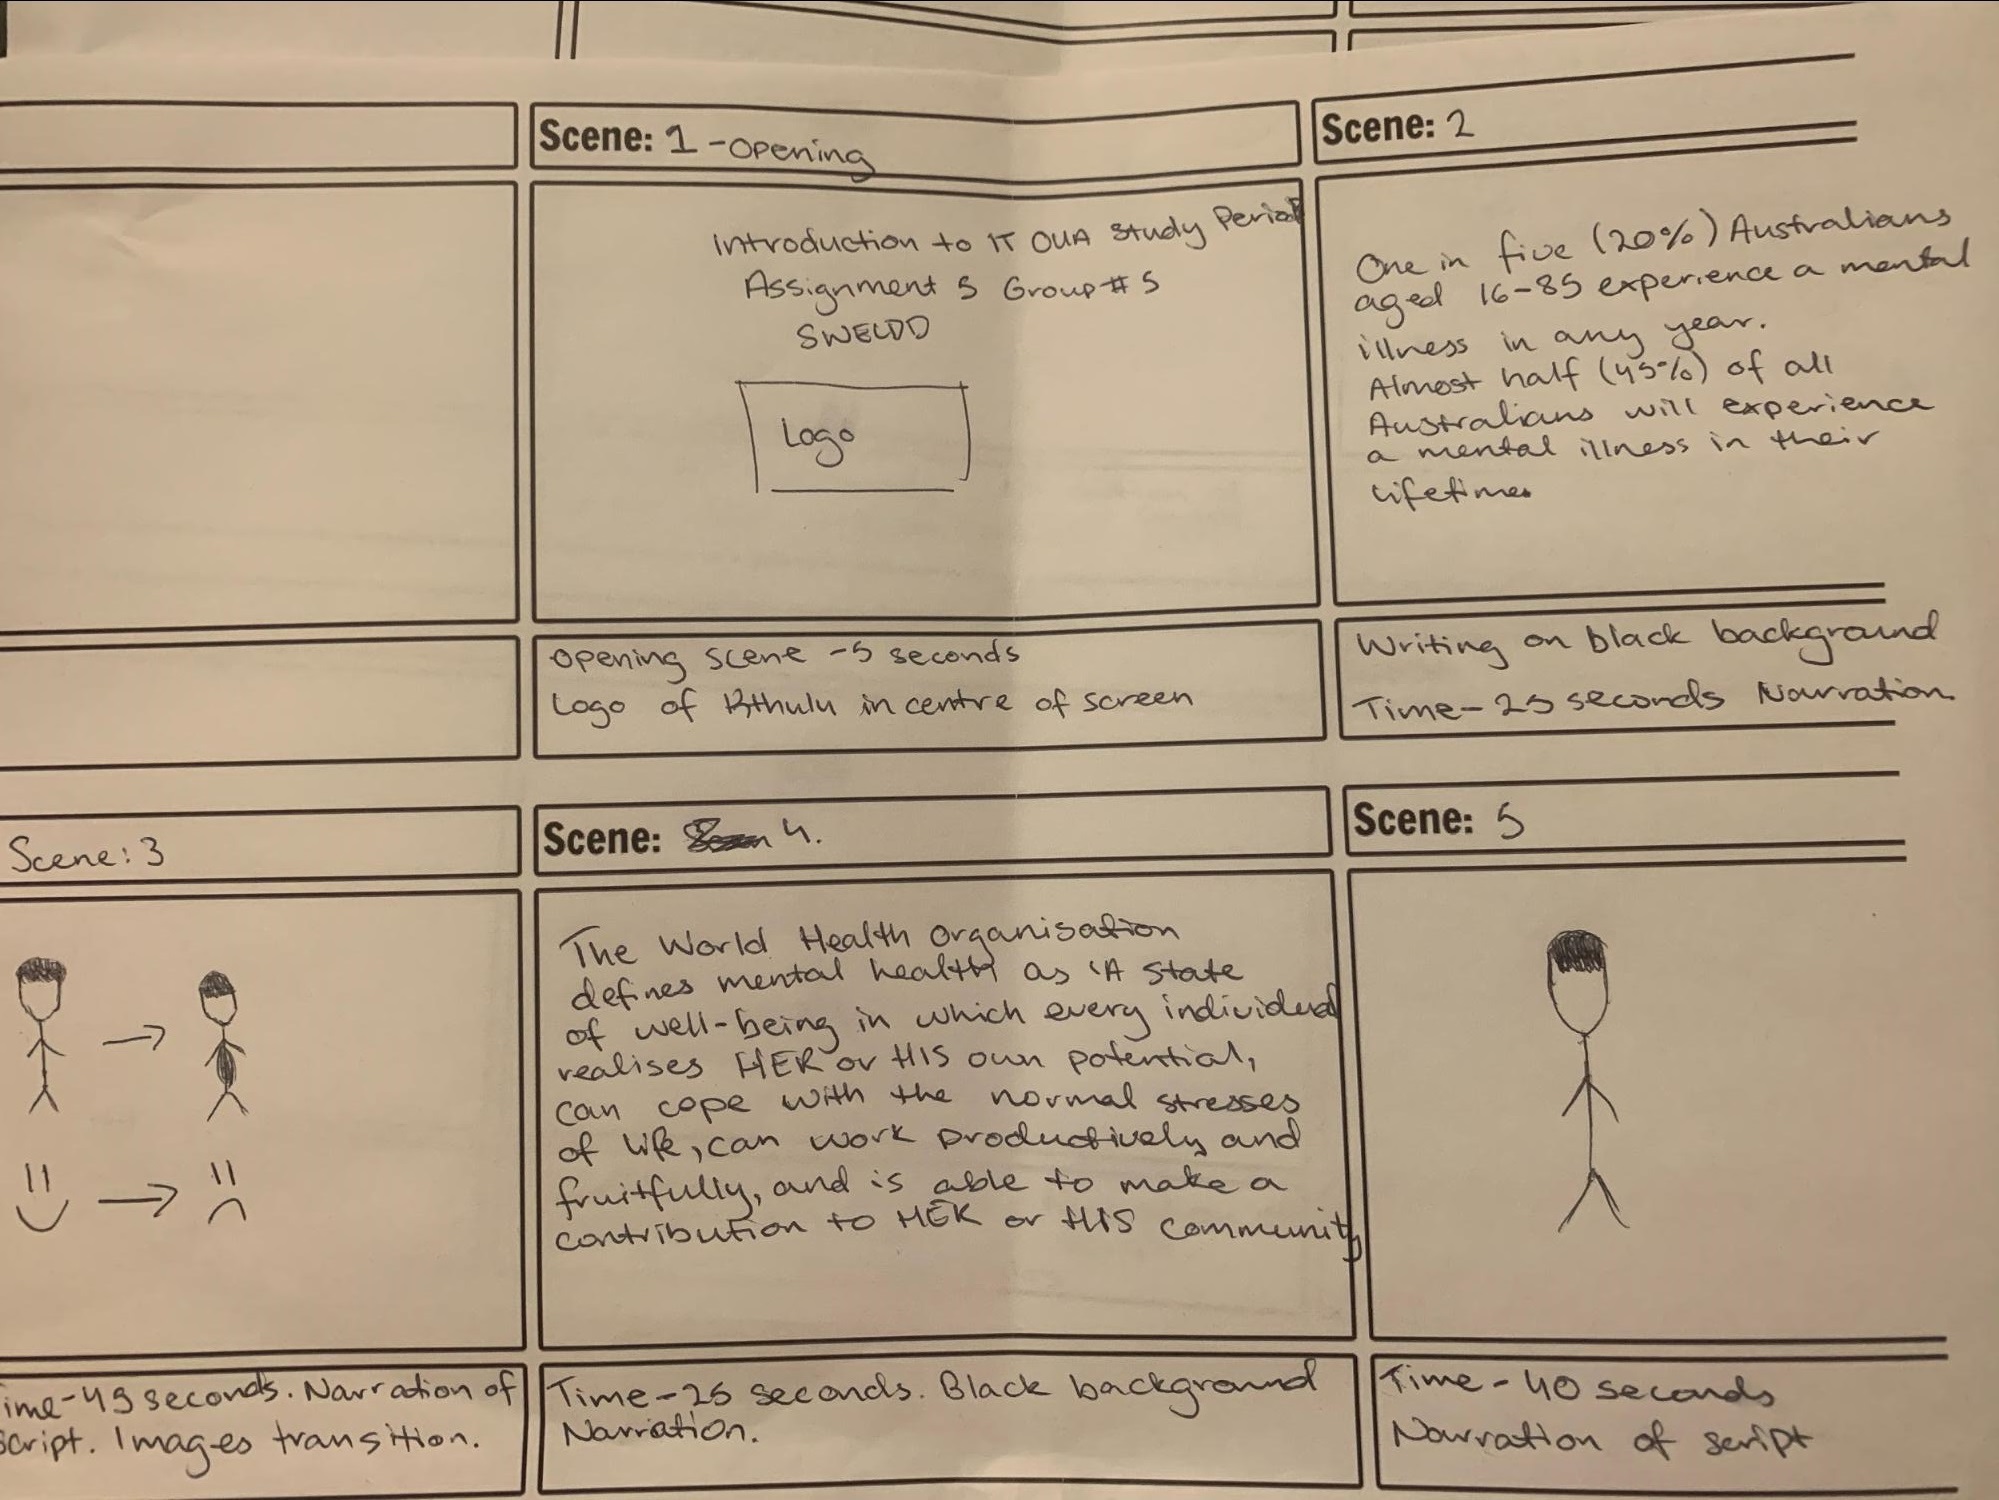 Scene: 1 - Opening
Introduction to IT OUA Study Period
Assignment 5 Group # 5
SWELDD
Logo
Opening scene - 5 seconds
Logo of in centre of screen
Scene: 2
One in five (20%) Australians
aged 16-85 experience a mental
illness in any year.
Almost half (45%) of all
Australians will experience
a mental illness in their
lifetime
Writing on black background
Time - 25 seconds Narration
Scene: 3
ime - 45 seconds. Narration of
script. Images transition.
Scene: 4.
The World Health Organisation
defines mental health as 'A state
of well-being in which every individual
realises HER or HIS own potential,
can cope with the normal stresses
of life, can work productively and
fruitfully, and is able to make a
contribution to HER or HIS community
Time - 25 seconds. Black background
Narration.
Scene: 5
Time - 40 seconds
Narration of script